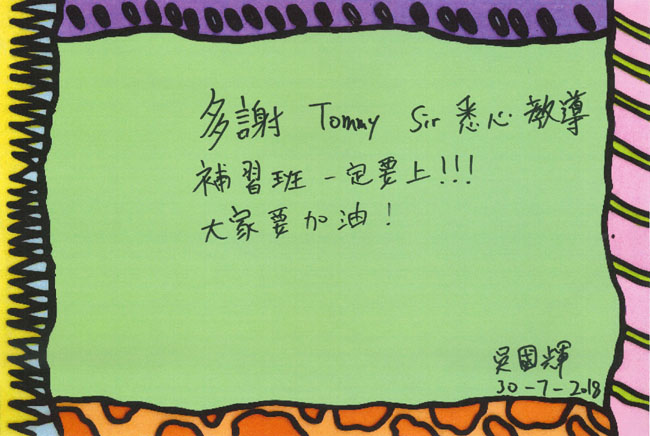 多謝 Tommy Sir 悉心教導
補習班一定要上!!!
大家要加油!
吳國輝
30-7-2018